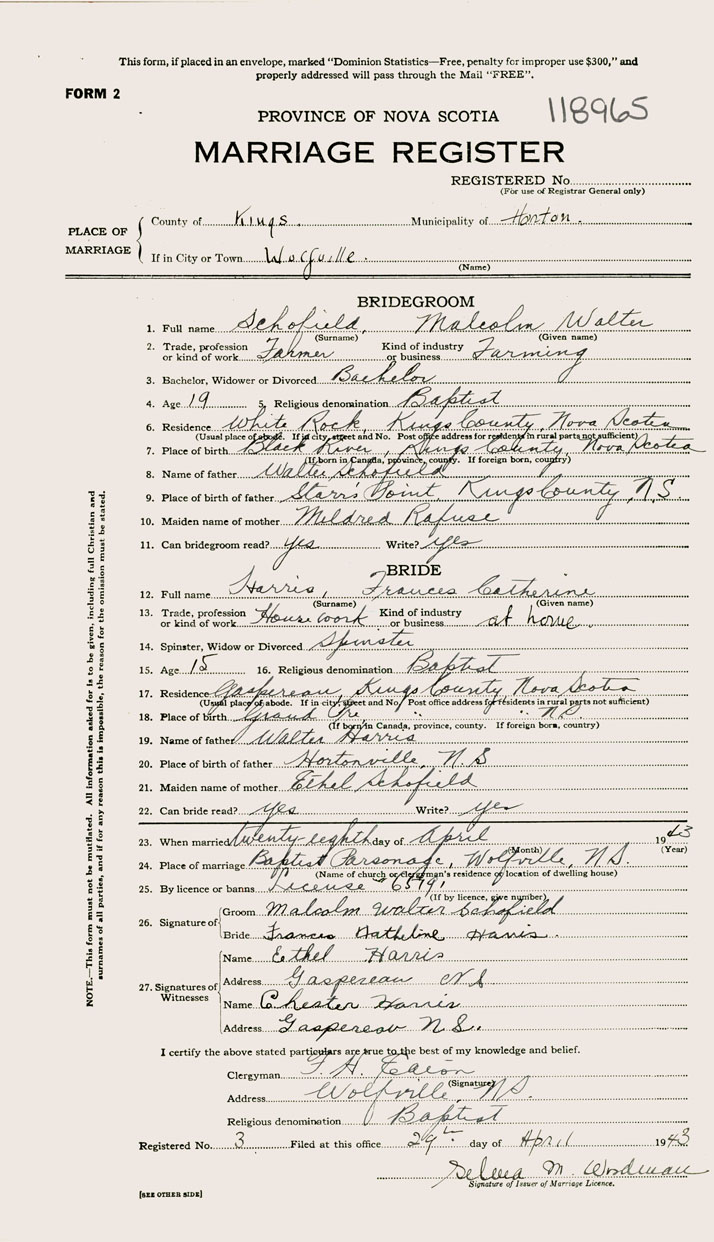 This form, if placed in an envelope, marked "Dominion Statistics—Free, penalty for improper use $300," and
properly addressed will pass through the Mail "FREE".
FORM 2
118965
PROVINCE OF NOVA SCOTIA
MARRIAGE REGISTER
REGISTERED No.
(For use of Registrar General only)
PLACE OF MARRIAGE
County of Kings. Municipality of Horton.
If in City or Town Wolfville.
(Name)
BRIDEGROOM
1. Full name Schofield, Malcolm Walter
(Surname) (Given name)
2. Trade, profession or kind of work Farmer Kind of industry or business Farming
3. Bachelor, Widower or Divorced Bachelor
4. Age 19 5. Religious denomination Baptist
6. Residence White Rock, Kings County, Nova Scotia
(Usual place of abode. If in city, street and No. Post office address for residents in rural parts not sufficient)
7. Place of birth Black River, Kings County, Nova Scotia
(If born in Canada, province, county. If foreign born, country)
8. Name of father Walter Schofield
9. Place of birth of father Starr's Point, Kings County, N.S.
10. Maiden name of mother Mildred Rafuse
11. Can bridegroom read? yes Write? yes
BRIDE
12. Full name Harris, Frances Catherine
(Surname) (Given name)
13. Trade, profession or kind of work Housework Kind of industry or business at home.
14. Spinster, Widow or Divorced Spinster
15. Age 15 16. Religious denomination Baptist
17. Residence Gaspereau, Kings County, Nova Scotia
(Usual place of abode. If in city, street and No. Post office address for residents in rural parts not sufficient)
18. Place of birth Grand Pre " " N.S.
(If born in Canada, province, county. If foreign born, country)
19. Name of father Walter Harris
20. Place of birth of father Hortonville, N.S
21. Maiden name of mother Ethel Schofield
22. Can bride read? yes Write? yes
23. When married twenty-eighth day of April 1943
(Month) (Year)
24. Place of marriage Baptist Parsonage, Wolfville, N.S.
(Name of church or clergyman's residence or location of dwelling house)
25. By licence or banns License 65791
(If by licence, give number)
26. Signature of
Groom Malcolm Walter Schofield
Bride Frances Katheline Harris.
27. Signatures of Witnesses
Name Ethel Harris
Address Gaspereau N S
Name Chester Harris
Address Gaspereau N.S.
I certify the above stated particulars are true to the best of my knowledge and belief.
Clergyman F. H. Eaton
(Signature)
Address Wolfville, N.S.
Religious denomination Baptist
Registered No. 3 Filed at this office 29th. day of April 1943
Selena M. Woodman
Signature of Issuer of Marriage Licence.
[SEE OTHER SIDE]
NOTE.—This form must not be mutilated. All information asked for is to be given, including full Christian and
surnames of all parties, and if for any reason this is impossible, the reason for the omission must be stated.